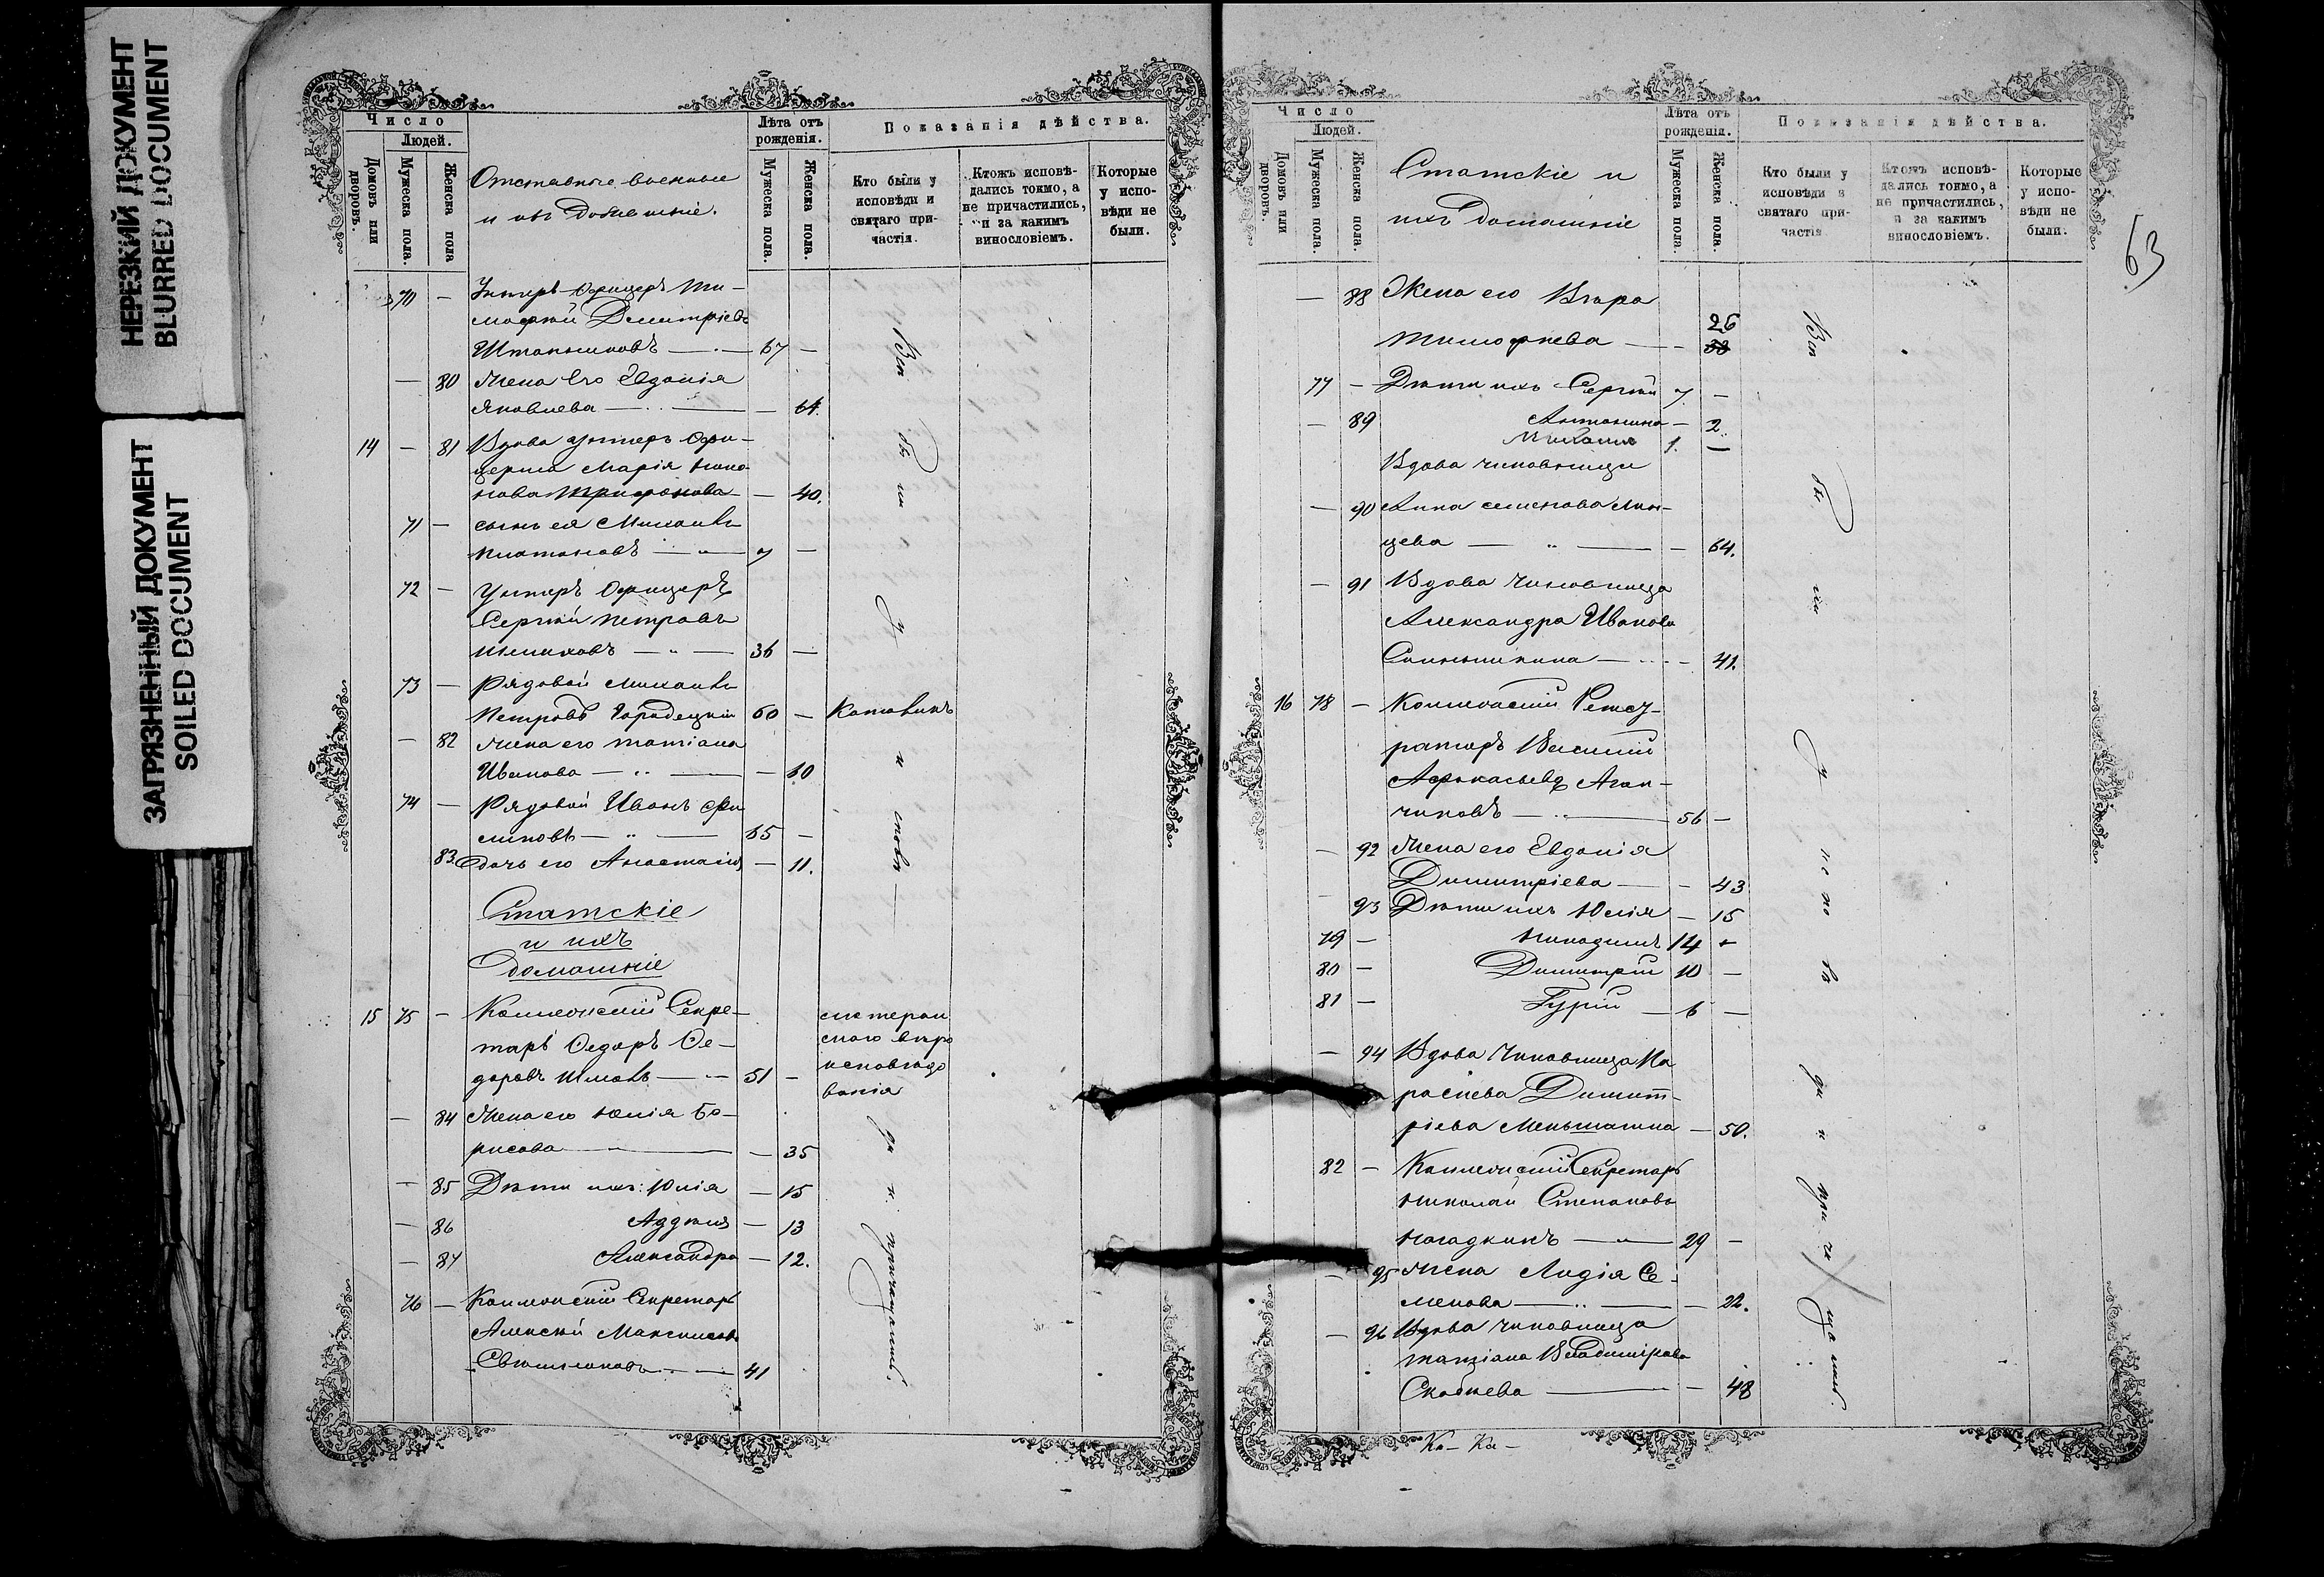 НЕРЕЗКИЙ ДОКУМЕНТ
BLURRED DOCUMENT
ЗАГРЯЗНЕННЫЙ ДОКУМЕНТ
SOILED DOCUMENT
Число
Людей.
Домовъ или дворовъ.
Мужеска пола.
Женска пола
Отставные военные
и ихъ домашніе.
Лѣта отъ рожденія.
Мужеска пола.
Женска пола.
Показанія дѣйства.
Кто были у исповѣди и святаго причастія.
Ктожъ исповѣдались токмо, а не причастились, и за какимъ винословіемъ.
Которые у исповѣди не были.
70 — Унтеръ Офицеръ Ти-
мофей Димитріевъ
67 —
— 80 Жена его Евдокія
Яковлева — — 64.
14 — 81 Вдова унтеръ Офи-
церша Марія
Трифонова — — 40.
71 — сынъ ея Михаилъ
Платоновъ — 7 —
72 — Унтеръ Офицеръ
Сергѣй Петровъ
— 36 —
73 — Рядовой Михаилъ
Петровъ Городецкій 60 —
— 82 Жена его Татіана
Иванова — — 60
74 — Рядовой Иванъ Фи
липовъ — 65 —
83 дочь его Анастасія — 11.
Статскіе
и ихъ
домашніе
15 75 — Коллежскій Секре-
тарь Ѳедоръ Ѳе-
доровъ — 51 —
лютеран
скаго вѣро
исповѣдо
ванія
— 84 Жена его Юлія Бо-
рисова — — 35
— 85 Дѣти ихъ: Юлія — 15
— 86 — 13
— 87 Александра — 12.
76 — Коллежскій Секретарь
Алексѣй Максимовъ
— 41
Всѣ бы ли у исповѣди и причастія.
63
Число
Людей.
Домовъ или дворовъ.
Мужеска пола.
Женска пола.
Статскіе и
ихъ домашніе
Лѣта отъ рожденія.
Мужеска пола.
Женска пола.
Показанія дѣйства.
Кто были у исповѣди и святаго причастія
Ктожъ исповѣдались токмо, а не причастились, и за какимъ винословіемъ.
Которые у исповѣди не были.
— 88 Жена его Вѣра
Тимофеева — — 26
77 — Дѣти ихъ Сергѣй 7. —
— 89 Антонина — 2.
Михаилъ 1. —
Вдова чиновница
— 90 Анна Семенова
— 64.
— 91 Вдова чиновница
Александра Иванова
— 41.
16 78 — Коллежскій Регист-
раторъ Василій
Афанасьевъ Ага-
чиновъ — 56 —
— 92 Жена его Евдокія
Димитріева — — 43
93 Дѣти ихъ Юлія — 15
79 — Никодимъ 14 —
80 — Димитрій 10 —
81 — Гурій — 6 —
— 94 Вдова чиновница Па
раскева Димит-
ріева Меньшагина — 50.
82 — Коллежскій Секретарь
Николай Степановъ
Нагаткинъ — 29 —
— 95 Жена Лидія Се-
менова — — 22.
— 96 Вдова чиновница
Татіана Владимірова
Скобнева — — 48
Всѣ бы ли у исповѣди и при ча щенія.